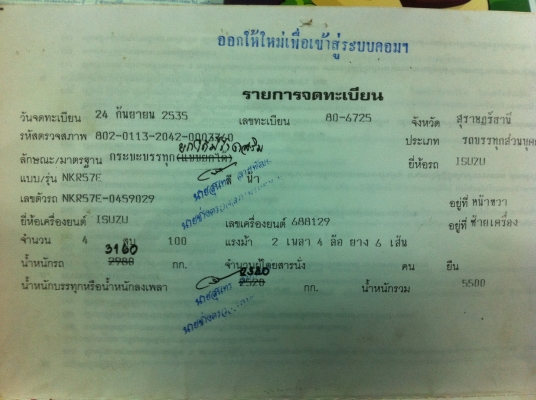 ออกให้ใหม่เพื่อเข้าสู่ระบบคอมฯ
รายการจดทะเบียน
วันจดทะเบียน 24 กันยายน 2535 เลขทะเบียน 80-6725 จังหวัด สุราษฎร์ธานี
รหัสตรวจสภาพ 802-0113-2042-0007760 ประเภท รถบรรทุกส่วนบุคค
ลักษณะ/มาตรฐาน กระบะบรรทุก(แบบยกได้) ยี่ห้อรถ ISUZU
แบบ/รุ่น NKR57E สี ฟ้า
เลขตัวรถ NKR57E-0459029 อยู่ที่ หน้าขวา
ยี่ห้อเครื่องยนต์ ISUZU เลขเครื่องยนต์ 688129 อยู่ที่ ซ้ายเครื่อง
จำนวน 4 สูบ 100 แรงม้า 2 เพลา 4 ล้อ ยาง 6 เส้น
3160
น้ำหนักรถ 2980 กก. จำนวนผู้โดยสารนั่ง คน ยืน
2340
น้ำหนักบรรทุกหรือน้ำหนักลงเพลา 2520 กก. น้ำหนักรวม 5500